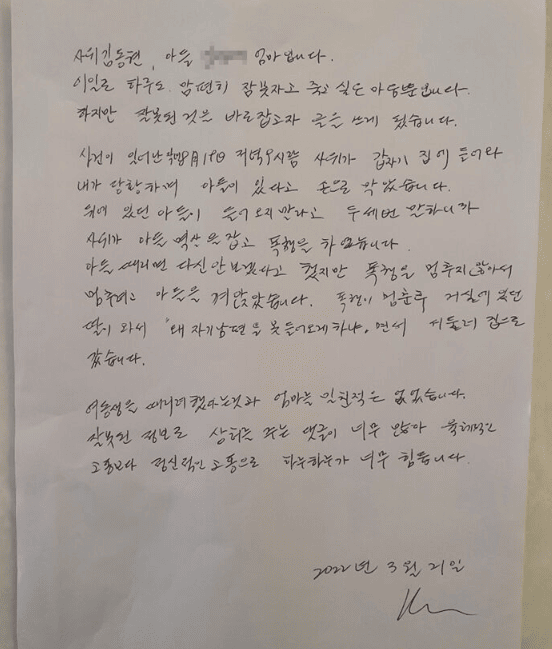 사위김동현, 아들 엄마입니다.
이일로 하루도 맘편히 잠못자고 죽고 싶은 마음뿐입니다.
하지만 잘못된 것은 바로잡고자 글을 쓰게 됐습니다.
사건이 있어난 8月18日 저녁9시쯤 사위가 갑자기 집에 들어와
내가 당황하며 아들이 있다고 손으로 막았습니다.
뒤에 있던 아들이 들어오지말라고 두세번 말하니까
사위가 아들 멱살을 잡고 폭행을 하였습니다.
아들 때리면 다신안보겠다고 했지만 폭행을 멈추지않아서
멈추려고 아들을 껴안았습니다. 폭행이 멈춘후 거실에있던
딸이 와서 "왜 자기남편을 못들어오게하냐, 면서 서둘러 집으로
갔습니다.
여동생을 때리려했다는것과 엄마를 밀친적은 없었습니다.
잘못된 정보로 상처를 주는 댓글이 너무 많아 육체적인
고통보다 정신적인 고통으로 하루하루가 너무 힘듭니다.
2022년 3월 21일